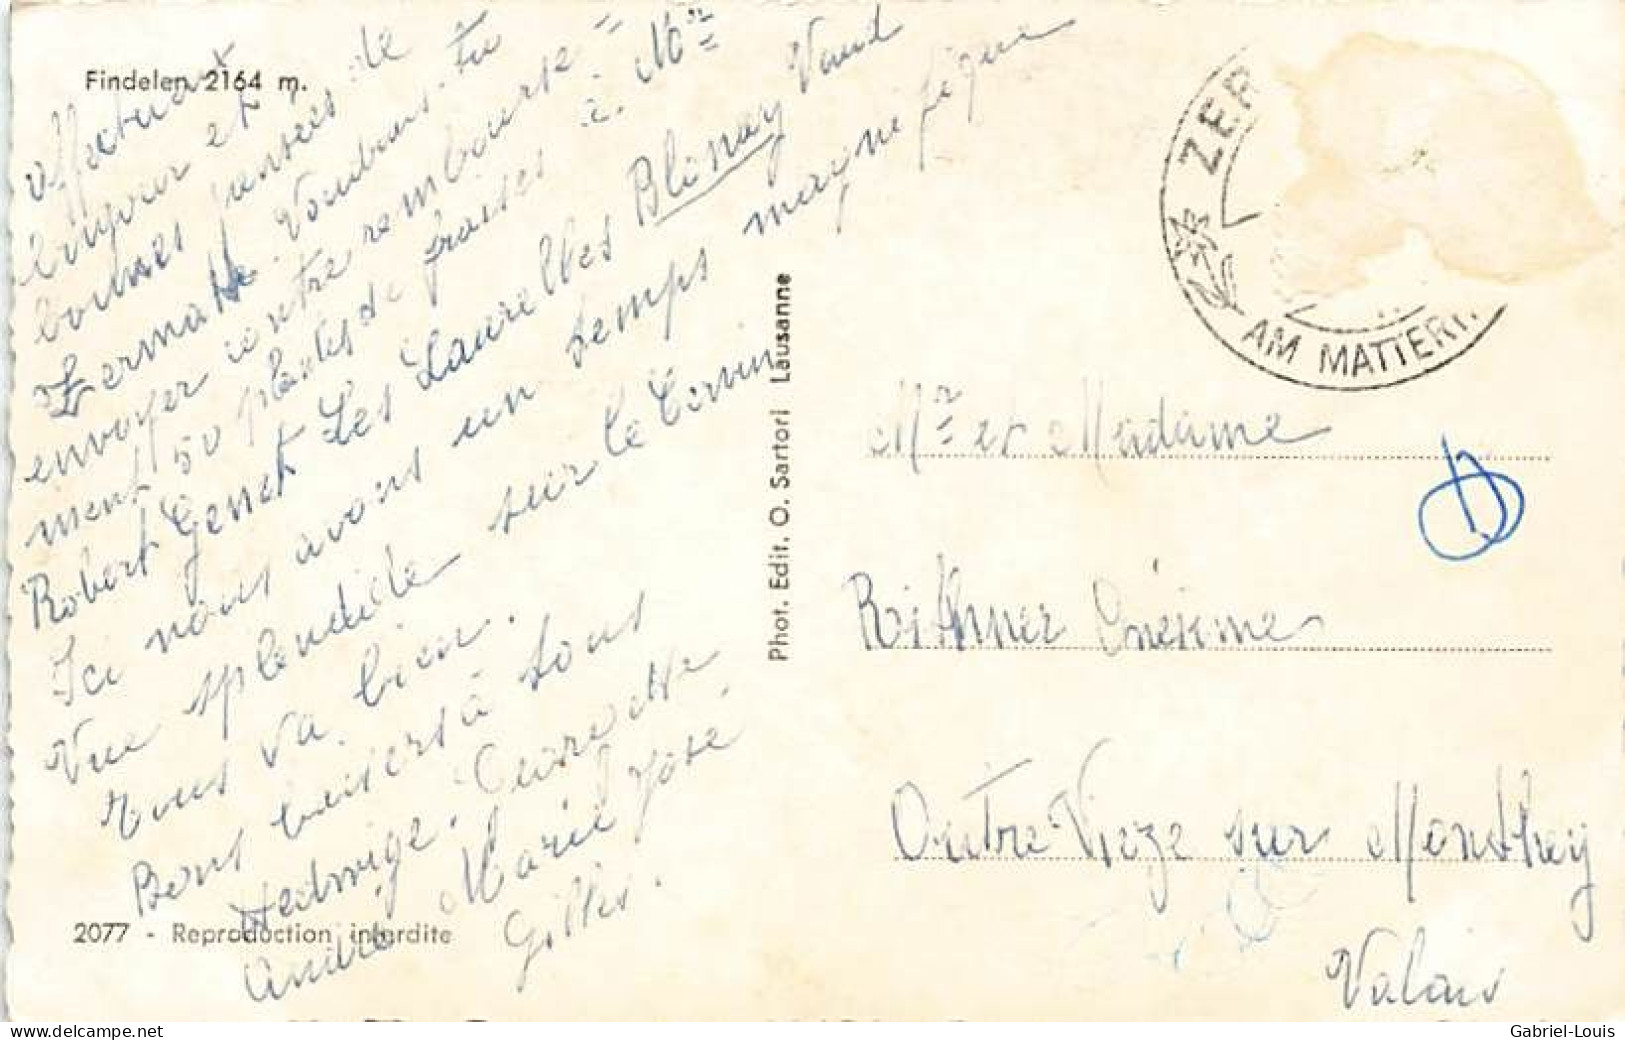 Findelen 2164 m.
affectueux
bonjour et
bonnes pensées de
Zermatt. Voudrais-tu
envoyer contre rembourse=
ment 50 plantes de fraises à Mr
Robert Genet Les Laurelles Blonay Vaud
Ici nous avons un temps magnifique
Vue splendide sur le Cervin
tous va bien.
Bons baisers à tous
Hedwige. Georgette
André Marie José
Gilles.
2077 - Reproduction interdite
Phot. Edit. O. Sartori Lausanne
ZER
AM MATTERH.
Mr et Madame
Rithner Onésime
Outre-Vièze sur Monthey
Valais
Gabriel-Louis